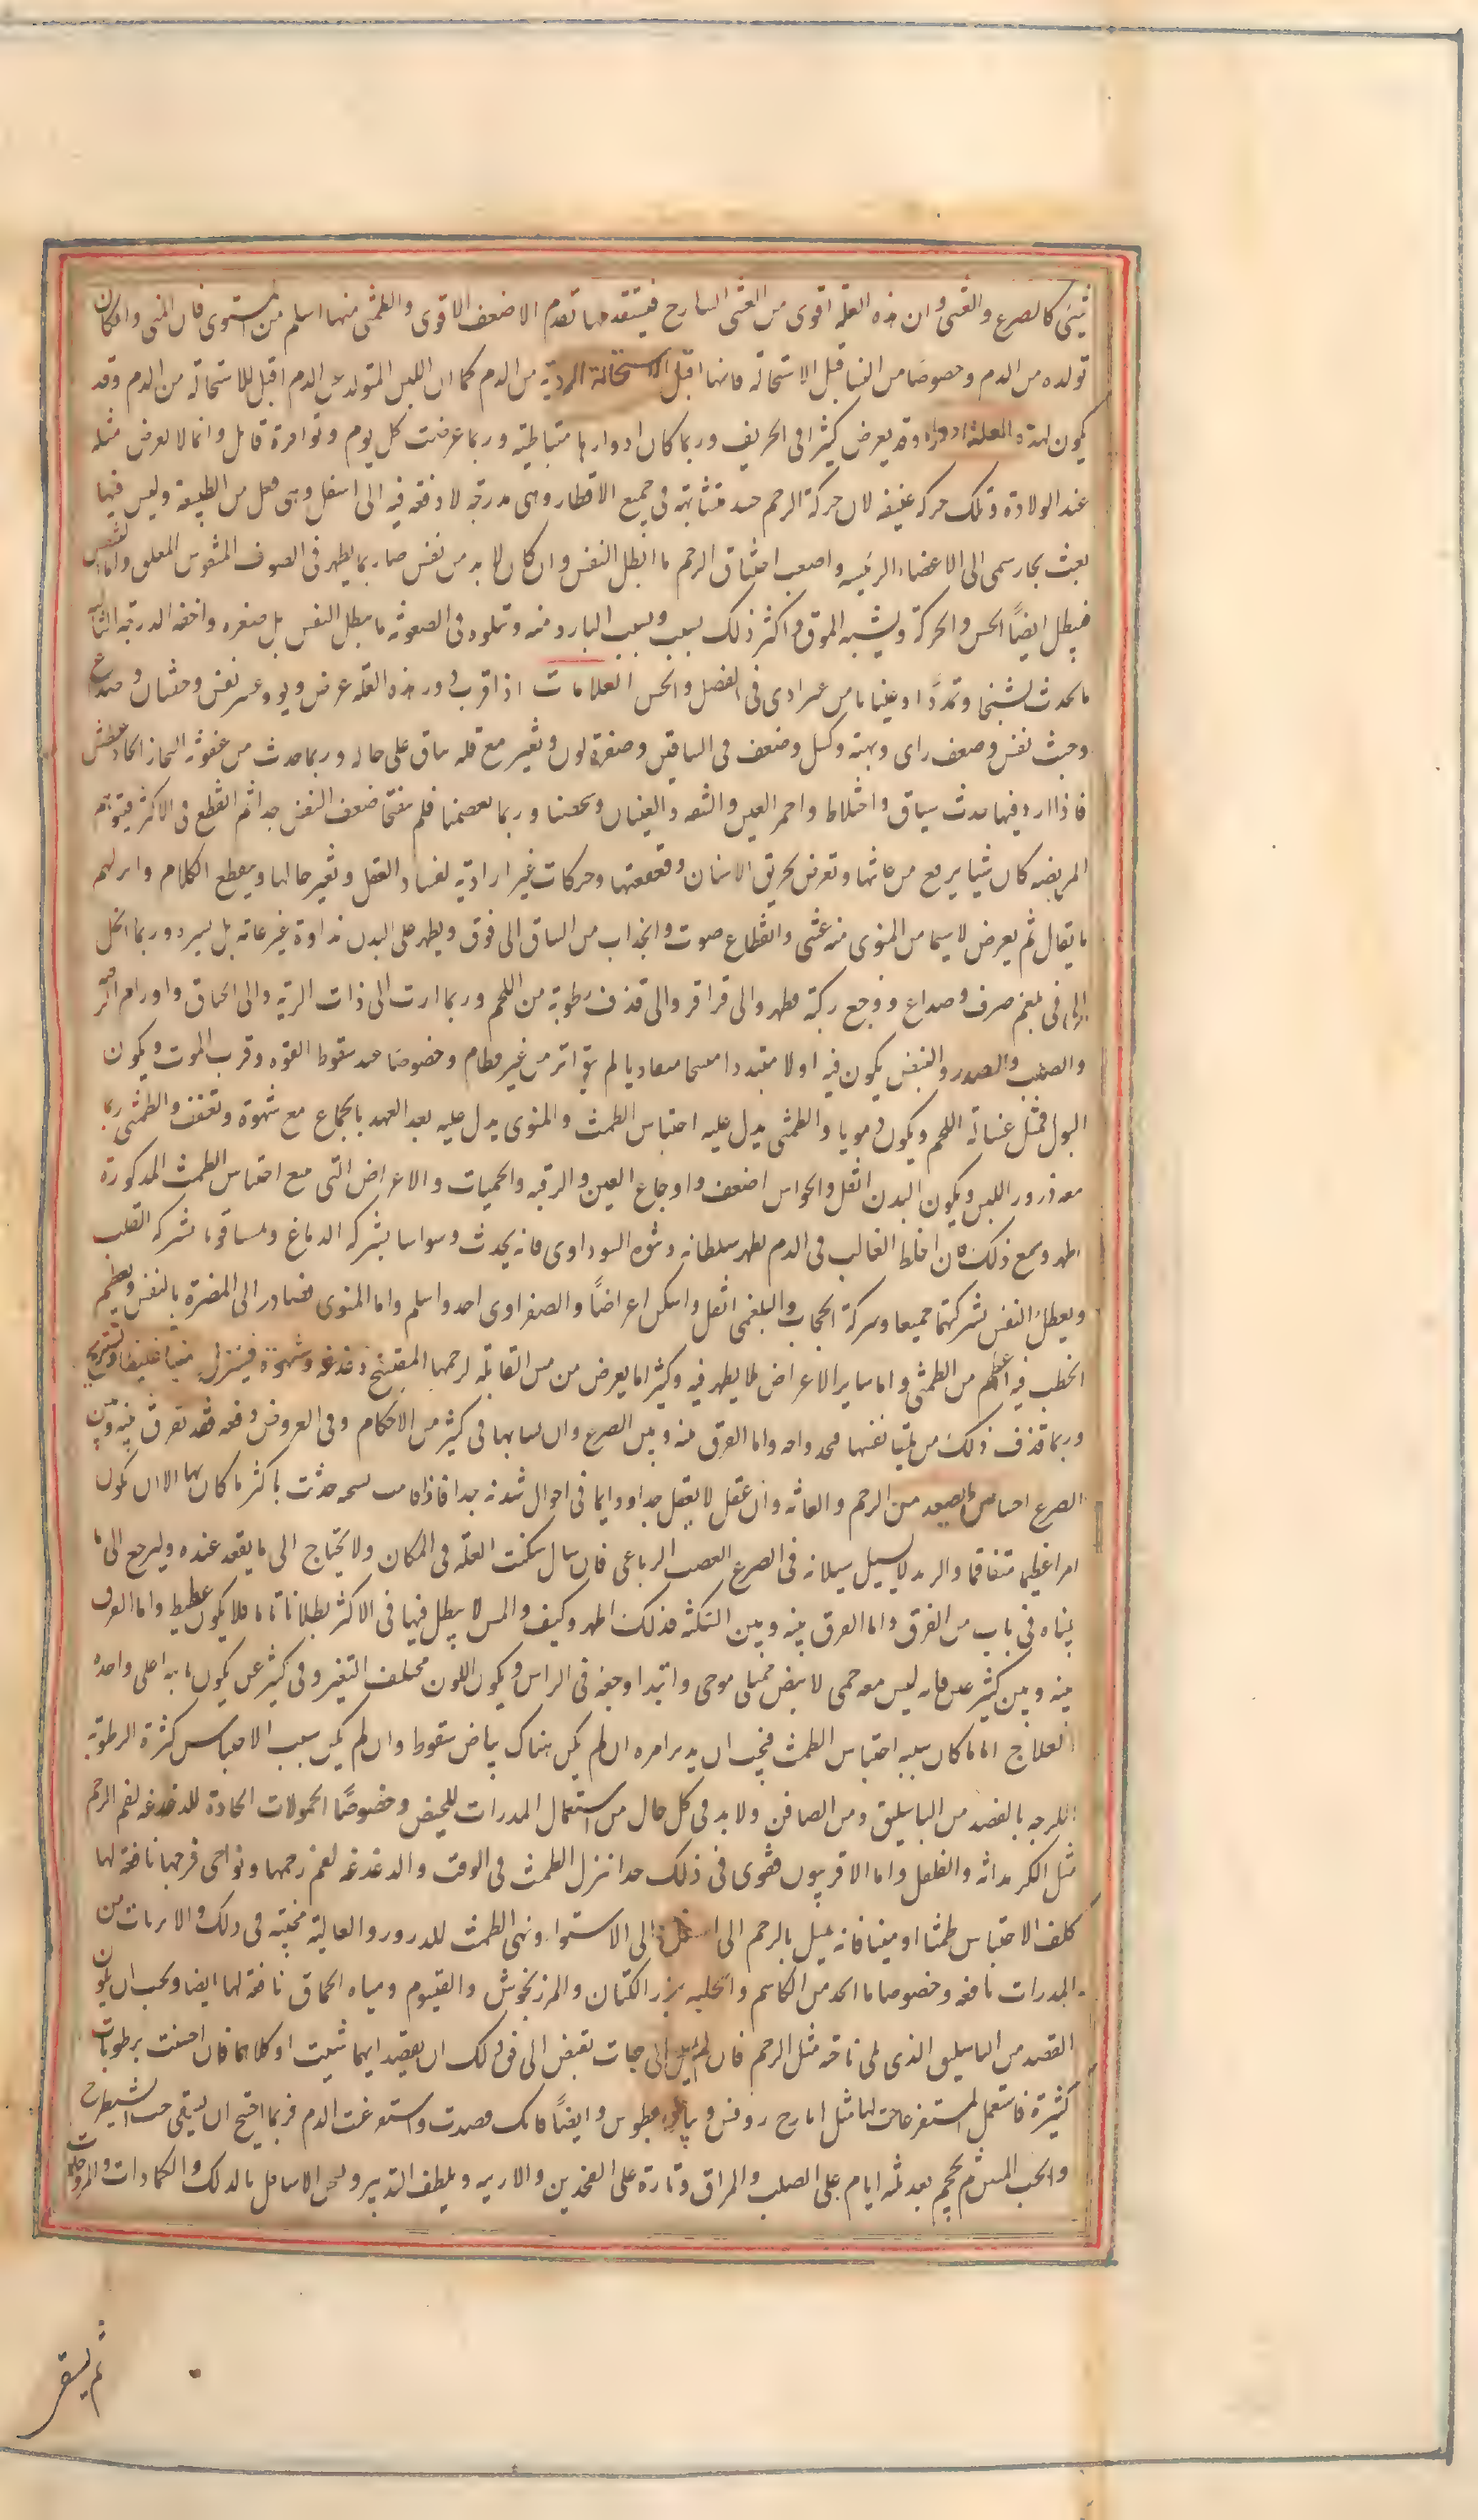 شئ كالصرع والغشى وان هذه العلة اقوى من الغشى السارح فيتقدمها تقدم الاضعف الاقوى والطمثى منها اسلم من المنوى فان المنى وان كان
تولده من الدم وخصوصا من النسا قبل الاستحالة فانها اقبل الاستحالة الردية من الدم كما ان اللبن المتولد عن الدم اقبل للاستحالة من الدم وقد
يكون لهذه العلة ادوار وقد يعرض كثيرا فى الخريف وربما كان ادوارها متباطية وربما عرضت كل يوم وتواترة قاتل وانما لا يعرض مثله
عند الولادة وتلك حركة عنيفة لان حركة الرحم متشابهة فى جميع الاقطار وهى مدرجة لا دفعة فيه الى اسفل وهى فعل من الطبيعة وليس فيها
بعث بخار سمى الى الاعضاء الرئيسه واصعب اختناق الرحم ما ابطل النفس وان كان لا بد من نفس ما ربما يظهر فى الصوف المنفوش المعلق
فيبطل ايضا الحس والحركة ويشبه الموتى واكثر ذلك بسبب المنوى البارد منه وتلوه فى الصعوبة ما يبطل النفس بل صغره واخفه الدرجة الثالثة
ما يحدث تشنجا وتمددا وغثيانا من غير اذى فى العقل والحس العلامات اذا قرب دور هذه العلة عرض ربو وعسر نفس وخفقان وصداع
وخبث نفس وضعف راى وبهتة وكسل وضعف فى الساقين وصفرة لون وتغير مع قلة ثبات على حاله وربما حدث من عفونة البخار الحاد عطش
فاذا ازداد فيها حدث سبات واختلاط واحمر العين والشفة والعينان وشخصتا وربما تغمضتا فلم تفتحا ضعف النفس جدا ثم انقطع فى الاكثر فيتوهم
المريضة كان شيئا يرتفع من عانتها وتعرض تحريق الاسنان وقعقعتها وحركات غير ارادية لفساد العقل وتغير حالها وينقطع الكلام
ما يقال ثم يعرض لا سيما من المنوى منه غشى وانقطاع صوت وانجذاب من الساق الى فوق ويظهر على البدن نداوة غير عامة بل يسيرة وربما انحل
الى قئ بلغم صرف وصداع ووجع ركبة وظهر والى قراقر والى قذف رطوبة من الرحم وربما ادت الى ذات الرية والى الخناق واورام الرقبة
والصدر والنبض يكون فيه اولا متمددا متشنجا متفاوتا ثم يتواتر من غير نظام وخصوصا عند سقوط القوة وقرب الموت ويكون
البول مثل غسالة اللحم ويكون دمويا والطمثى يدل عليه احتباس الطمث والمنوى يدل عليه بعد العهد بالجماع مع شهوة وتعفف والطمثى ربما
معه درور اللبن ويكون البدن اثقل والحواس اضعف واوجاع العين والرقبة والحميات والاعراض التى مع احتباس الطمث المذكورة
اظهر ومع ذلك فان الخلط الغالب فى الدم يظهر سلطانه وشره السوداوى فانه يحدث وسواسا بشركة الدماغ وغما قويا بشركة القلب
ويعطل النفس بشركتهما جميعا وبشركة الحجاب والبلغمى اثقل واسكن اعراضا والصفراوى احد واسلم واما المنوى فمبادر الى المضرة بالنفس ويعظم
الخطب فيه اعظم من الطمثى واما ساير الاعراض فلا يظهر فيه وكثيرا ما يعرض من مس القابلة لرحمها المفتنح دغدغة وشهوة فينزل منيا غليظا وتستريح
وربما قذف ذلك من تلقا نفسها فتجد راحة واما الفرق بينه وبين الصرع وان تشابها فى كثير من الاحكام وفى العروض دفعة فقد تفرق بينه وبين
الصرع احساس ما يصعد من الرحم والعانة وان عقل لا يفقد جدا ودايما فى احوال شدته جدا فاذا قامت حدثت باكثر ما كان بها الا ان يكون
امرا عظيما متفاقما والزبد لا يسيل سيلانه فى الصرع الصعب الدماغى فان سال سكنت العلة فى المكان ولا يحتاج الى ما يفقد عنده وليرجع الى ما
بيناه فى باب من الفرق واما الفرق بينه وبين السكتة فذلك اظهر وكيف والحس لا يبطل فيها فى الاكثر بطلانا تاما فلا يكون غطيط واما الفرق
بينه وبين ليثرغس فانه ليس معه حمى لا نبض ممتلى موجى وابتدا وجعه فى الراس ويكون اللون مختلف التغير وفى ليثرغس يكون ثابتا على واحدة
العلاج اما ما كان سببه احتباس الطمث فيجب ان يدبر امره ان لم يكن هناك بياض سقوط وان لم يكن سبب الاحتباس كثرة الرطوبة
اللزجة بالفصد من الباسليق ومن الصافن ولا بد فى كل حال من استعمال المدرات للحيض وخصوصا الحمولات الحادة للدغدغة لفم الرحم
مثل الكرمدانة والفلفل واما الاقربيون فقوى فى ذلك جدا تنزل الطمث فى الوقت والدغدغة لفم رحمها ونواحى فرجها نافعة لها
كلف الاحتباس طمثا او منيا فانه يميل بالرحم الى اسفل والى الاستوا وتهيئ الطمث للدرور والغالية عجيبة فى ذلك والابزنات من
المدرات نافعة وخصوصا ما اتخذ من الكاشم والحلبه بزر الكتان والمرزنجوش والقيسوم ومياه الحماق نافعة لها ايضا ويجب ان يكون
الفصد من الباسليق الذى يلى ناحية مثل الرحم فان لم يمل الى جهات تقبض الى فوق ذلك ان يفصد ايهما شئت او كلاهما فان احسنت برطوبات
كثيرة فاستعمل المستفرغات لها مثل ايارج روفس وثيادريطوس وايضا فانك فصدت واستفرغت الدم فربما احتيج ان يسقى حب الشيطرج
والحب المنتن ثم يحجم بعد ثلثة ايام على الصلب والمراق وتارة على الفخذين والاربية ويلطف التدبير ويسخن الاسافل بالدلك والكمادات والمروخات
ثم يسقى